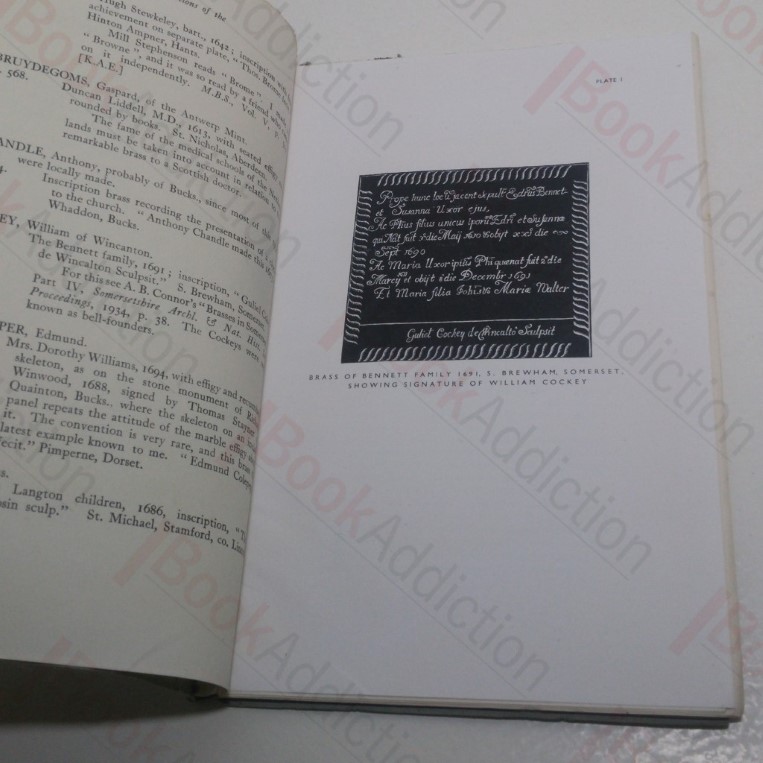 Hugh Stewkeley, bart., 1642; inscription with
achievement on separate plate, "Thos. Brome
Hinton Ampner, Hants.
Mill Stephenson reads "Brome". I
"Browne" and it was so read by a friend who
on it independently. M.B.S., Vol. V.
[K.A.E.]
BRUYDEGOMS, Gaspard, of the Antwerp Mint.
568.
Duncan Liddell, M.D., 1613, with seated effigy
rounded by books. St. Nicholas, Aberdeen.
The fame of the medical schools of the
lands must be taken into account in relation
remarkable brass to a Scottish doctor.
ANDLE, Anthony, probably of Bucks., since most of
were locally made.
Inscription brass recording the presentation of
to the church. "Anthony Chandle made this
Whaddon, Bucks.
EY, William of Wincanton.
The Bennett family, 1691; inscription, "Guliel Cockey
de Wincalton Sculpsit." S. Brewham, Somerset.
For this see A. B. Connor's "Brasses in Somerset
Part IV, Somersetshire Archl. & Nat. Hist.
Proceedings, 1934, p. 38. The Cockeys were
known as bell-founders.
PER, Edmund.
Mrs. Dorothy Williams, 1694, with effigy and
skeleton, as on the stone monument of
Winwood, 1688, signed by Thomas Stayner
Quainton, Bucks., where the skeleton on an
panel repeats the attitude of the marble effigy
it. The convention is very rare, and this brass
latest example known to me. "Edmund Colepeper
fecit." Pimperne, Dorset.
Langton children, 1686, inscription,
sin sculp." St. Michael, Stamford, co.
PLATE I
Prope hunc locū jacent sepult Edrūs Bennet
et Susanna Uxor ejus,
Ac Phūs filius unicus iporū Edri et Susanna
qui Nat fuit die Maij 1610 & obyt xxj die
Sept 1690
Ac Maria Uxor ipiūs Phi quenat fuit die
Marcy et obijt die Decembr 1691
Et Maria filia Johis & Mariæ Walter
Guliel Cockey de Wincalto Sculpsit
BRASS OF BENNETT FAMILY 1691, S. BREWHAM, SOMERSET,
SHOWING SIGNATURE OF WILLIAM COCKEY
BookAddiction